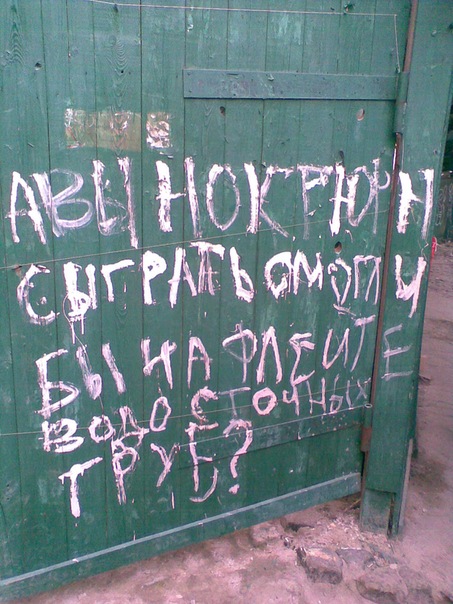 А ВЫ НОКТЮРН
СЫГРАТЬ СМОГЛИ
БЫ НА ФЛЕЙТЕ
ВОДОСТОЧНЫХ
ТРУБ?